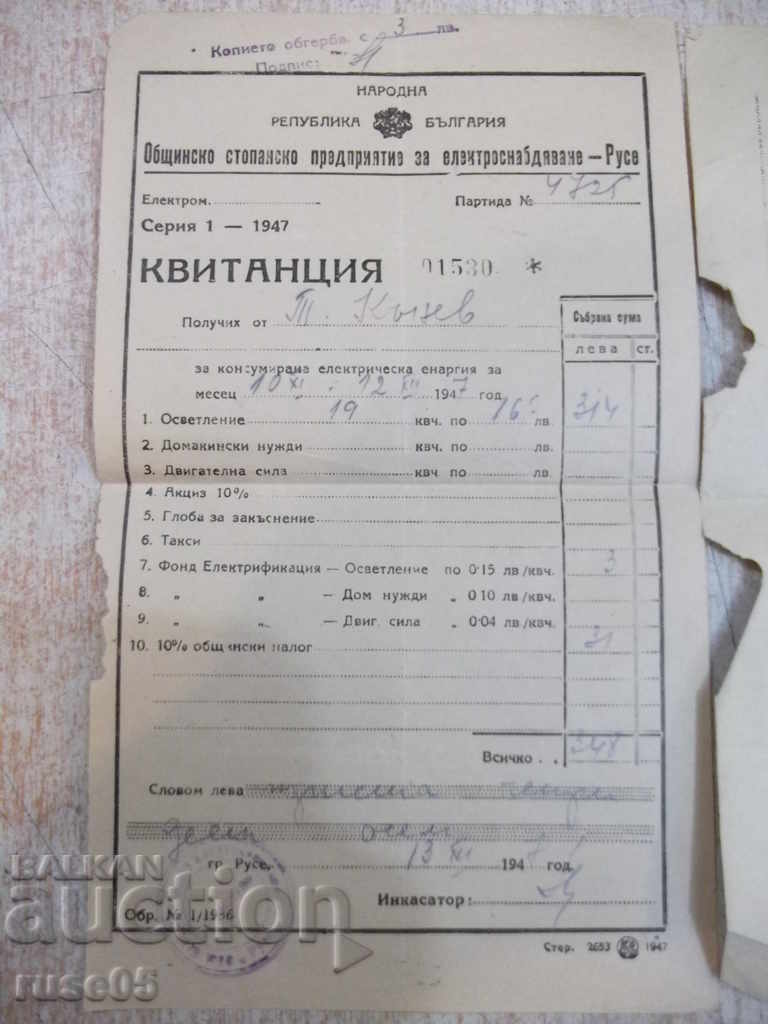 Копието обгерба. с 3 лв.
Подпис:
НАРОДНА
РЕПУБЛИКА БЪЛГАРИЯ
Общинско стопанско предприятие за електроснабдяване – Русе
Електром. Партида № 4725
Серия 1 — 1947
КВИТАНЦИЯ 01530 *
Получих от Т. Кънев
Събрана сума
лева ст.
за консумирана електрическа енаргия за
месец 10 XI. 12 XII 1947 год.
1. Осветление 19 квч. по 16 лв. 314
2. Домакински нужди квч. по лв.
3. Двигателна сила квч. по лв.
4. Акциз 10%
5. Глоба за закъснение
6. Такси
7. Фонд Електрификация — Осветление по 0·15 лв/квч. 3
8. „ „ — Дом нужди „ 0·10 лв/квч.
9. „ „ — Двиг. сила „ 0·04 лв/квч.
10. 10% общински налог 31
Всичко 348
Словом лева триста четири
десет осем
гр Русе, 13 XII 1947 год.
Инкасатор:
Обр. № 1/1936
Стер. 2653 1947
BALKAN
auction
ruse05